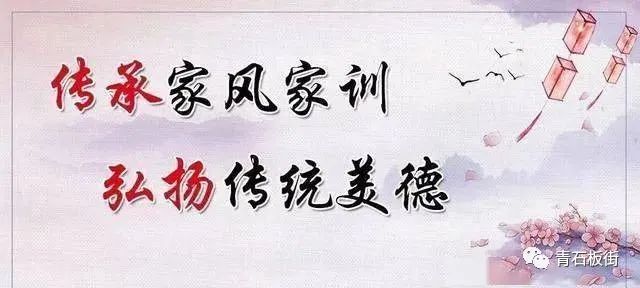 传承家风家训
弘扬传统美德
青石板街